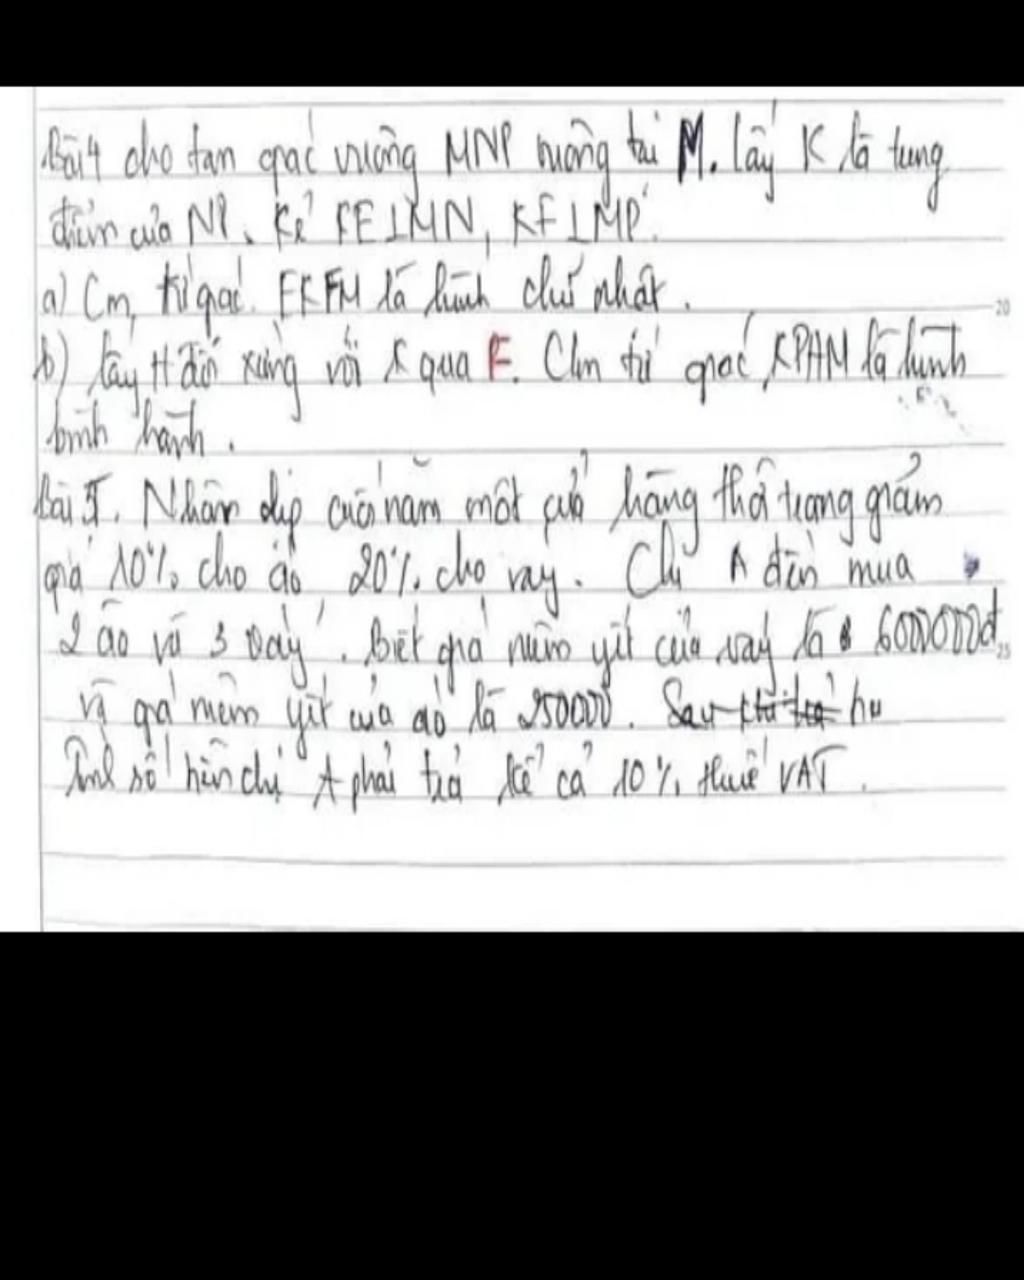 Bài 4 cho tam giác vuông MNP vuông tại M. lấy K là trung
điểm của NP. Kẻ KE⊥MN, KF⊥MP.
a) Cm, tứ giác. EKFM là hình chữ nhật. 20
b) lấy H đối xứng với K qua F. Cm tứ giác KPHM là hình
bình hành.
Bài 5. Nhân dịp cuối năm một cửa hàng thời trang giảm
giá 10% cho áo 20% cho váy. Chị A đến mua
2 áo và 3 váy. Biết giá niêm yết của váy là 600000đ 25
và giá niêm yết của áo là 250000.
Tính số tiền chị A phải trả kể cả 10% thuế VAT.